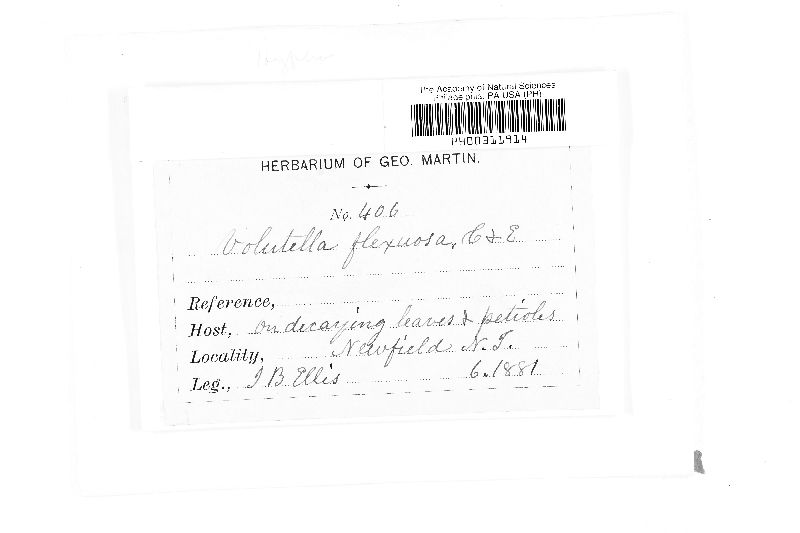 The Academy of Natural Sciences
Philadelphia, PA USA (PH)
PH00311914
HERBARIUM OF GEO. MARTIN.
No. 406
Volutella flexuosa, C & E
Reference,
Host, on decaying leaves & petioles
Locality, Newfield N.J.
Leg., J B Ellis 6.1881